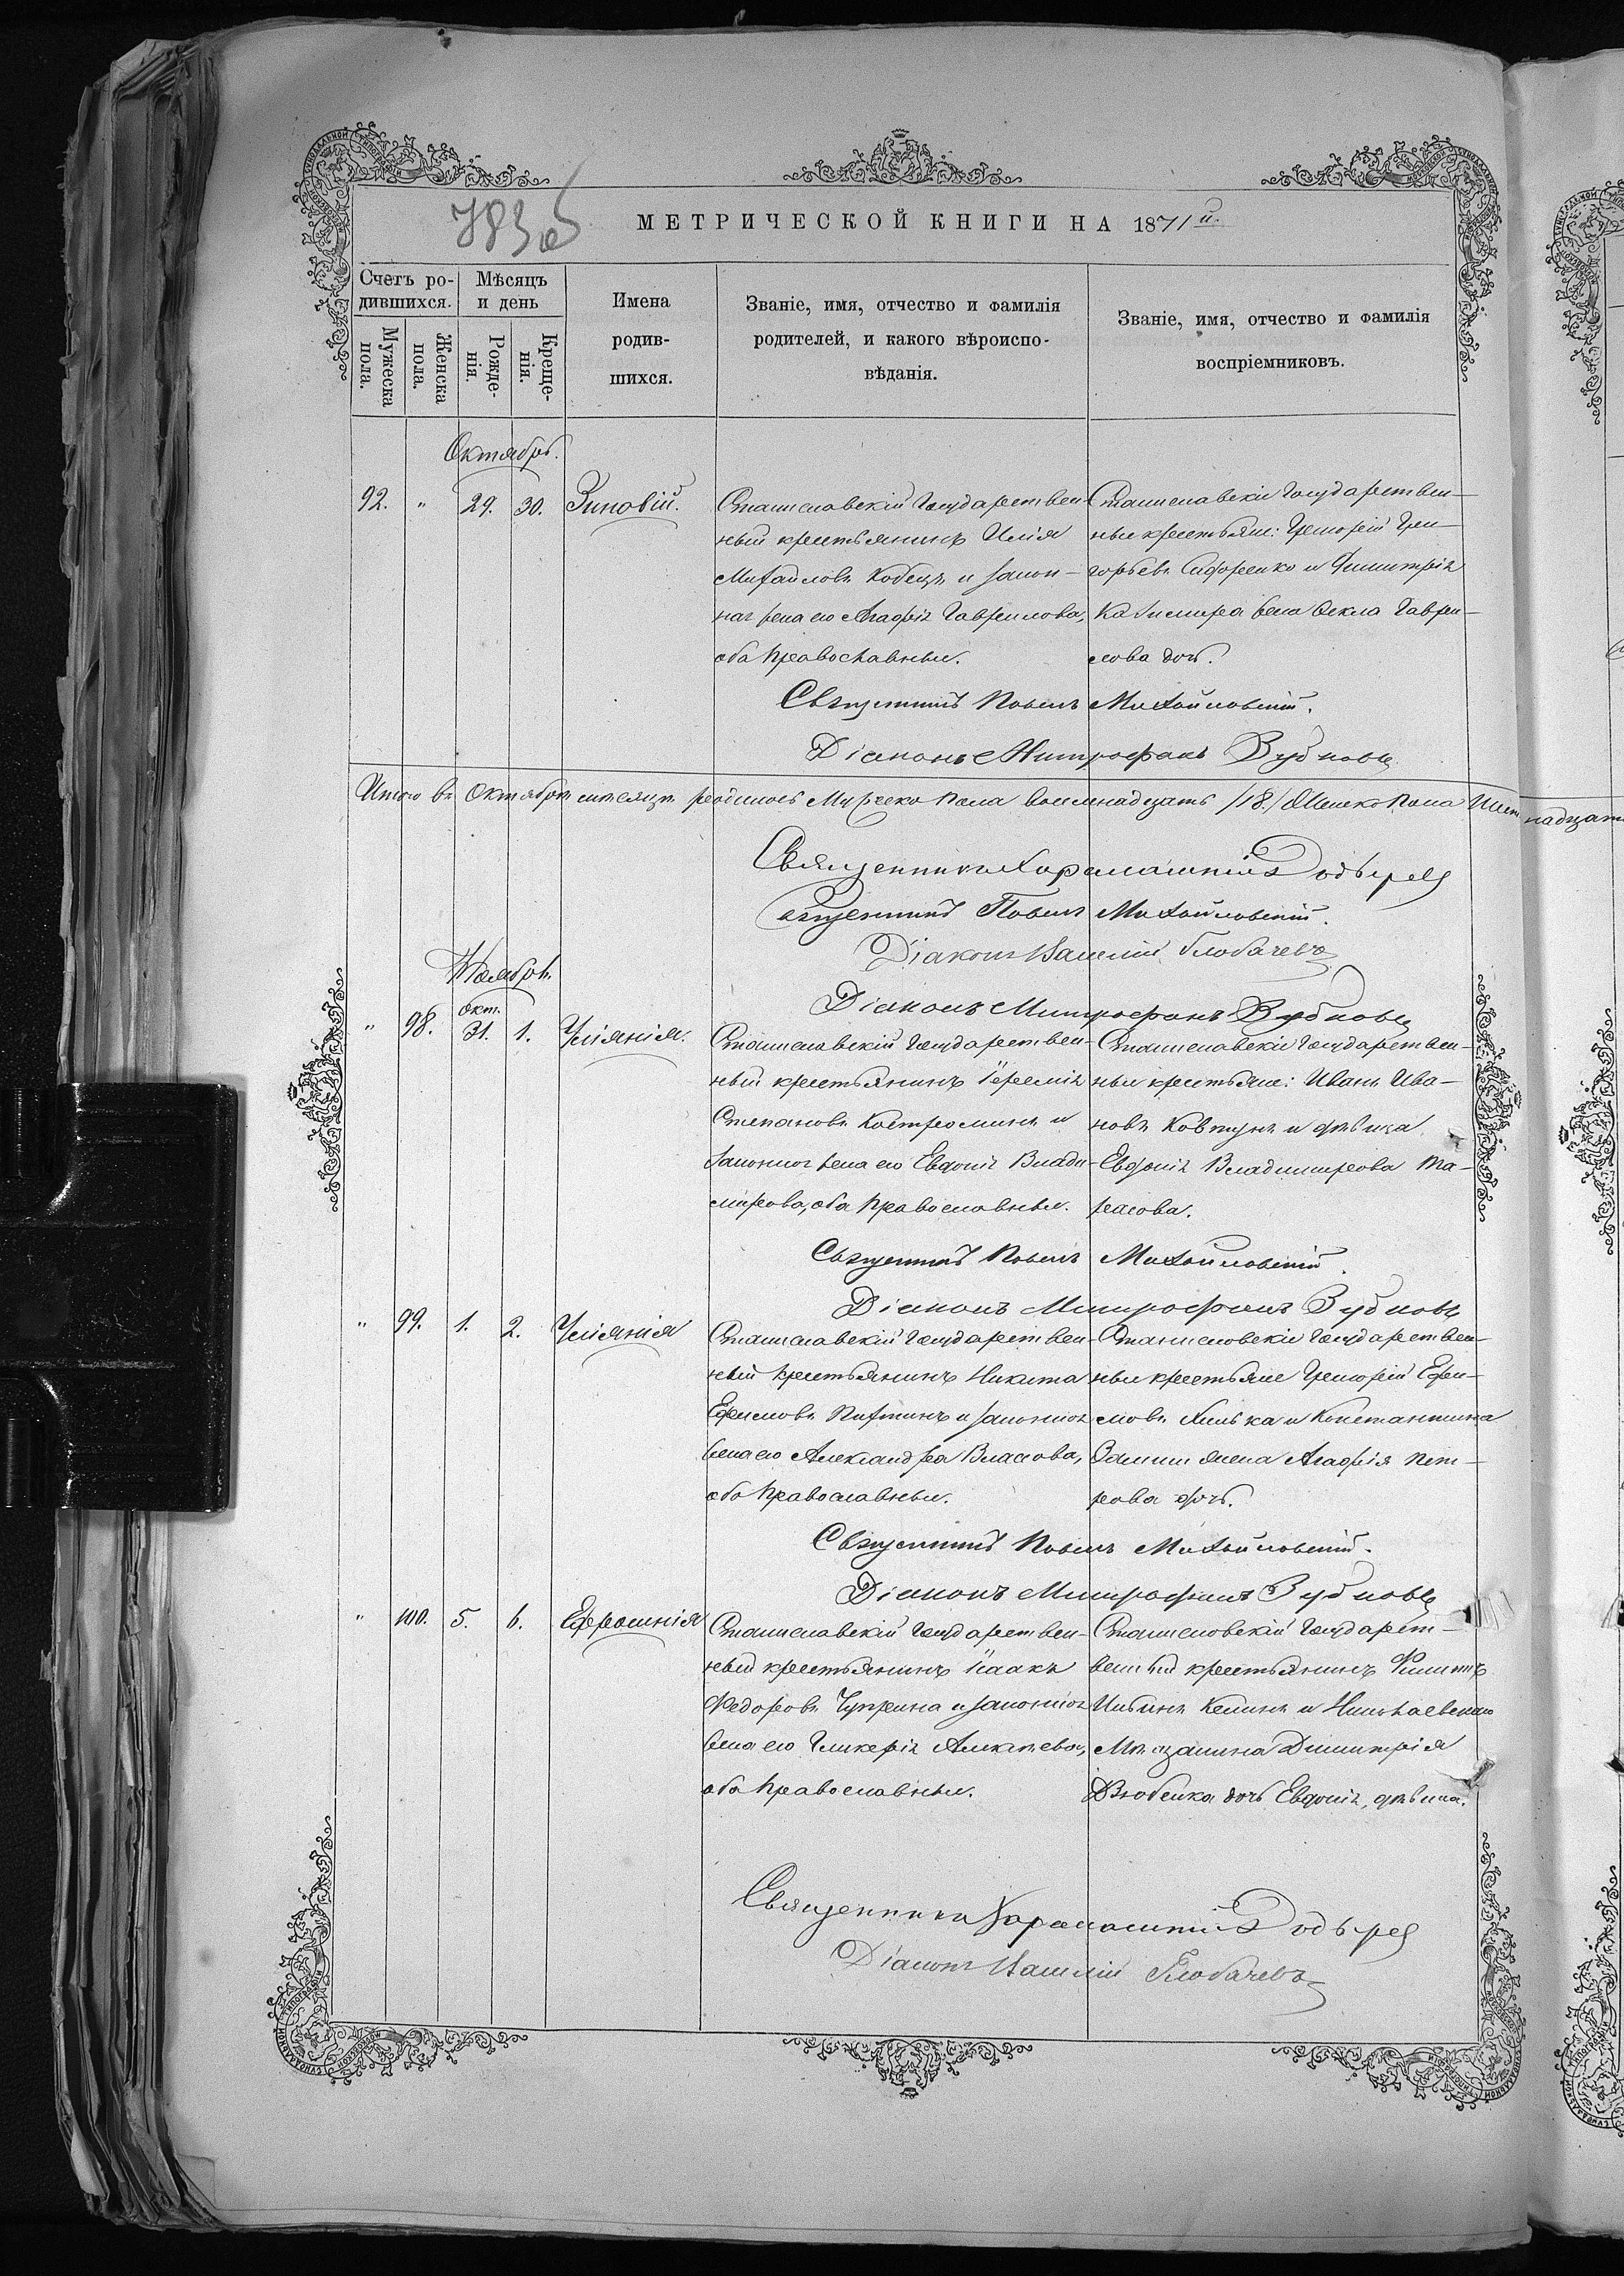 783 об
МЕТРИЧЕСКОЙ КНИГИ НА 1871й.
Счетъ родившихся.
Мѣсяцъ и день
Имена родившихся.
Званіе, имя, отчество и фамилія родителей, и какого вѣроисповѣданія.
Званіе, имя, отчество и фамилія воспріемниковъ.
Мужеска пола.
Женска пола.
Рожденія.
Крещенія.
Октябрь.
92. " 29. 30. Зиновій.
Станиславскій Государствен-
ный крестьянинъ Илія
Михайловъ Кобецъ и закон-
ная жена его Агафія Гаврилова,
оба Православные.
Станиславскіе Государствен-
ные крестьяне: Григорій Гри-
горьевъ Сидоренко и Димитрія
Казимира жена Фекла Гаври-
лова дочь.
Священникъ Павелъ Михайловскій.
Діаконъ Митрофанъ Зубковъ
Итого въ Октябрѣ мѣсяцѣ родилось Мужеска пола восемнадцать /18./ Женска пола Шест
надцать
Священникъ Харалампій
Священникъ Павелъ Михайловскій.
Діаконъ Василій Глобачевъ
Діаконъ Митрофанъ Зубковъ
Ноябрь.
" 98. Окт. 31. 1. Уліянія.
Станиславскій Государствен-
ный крестьянинъ Іеремія
Степановъ Костроминъ и
законная жена его Евдокія Влади-
мірова, оба Православные.
Станиславскіе Государствен-
ные крестьяне: Иванъ Ива-
новъ Ковтунъ и дѣвица
Евдокія Владимирова Та-
расова.
Священникъ Павелъ Михайловскій.
Діаконъ Митрофанъ Зубковъ
" 99. 1. 2. Уліянія
Станиславскій Государствен-
ный крестьянинъ Никита
Ефимовъ и законная
жена его Александра Власова,
оба Православные.
Станиславскіе Государствен-
ные крестьяне Григорій Ефи-
мовъ и Константина
жена Агафія Пет-
рова дочь.
Священникъ Павелъ Михайловскій.
Діаконъ Митрофанъ Зубковъ
" 100. 5. 6. Ефросинія
Станиславскій Государствен-
ный крестьянинъ Исаакъ
Федоровъ Чуприна и законная
жена его Гликерія Алексѣева,
оба Православные.
Станиславскій Государст-
венный крестьянинъ Филиппъ
и Николаевскаго
Мѣщанина Димитрія
Дзюбенка дочь Евдокія, дѣвица.
Священникъ Харалампій
Діаконъ Василій Глобачевъ